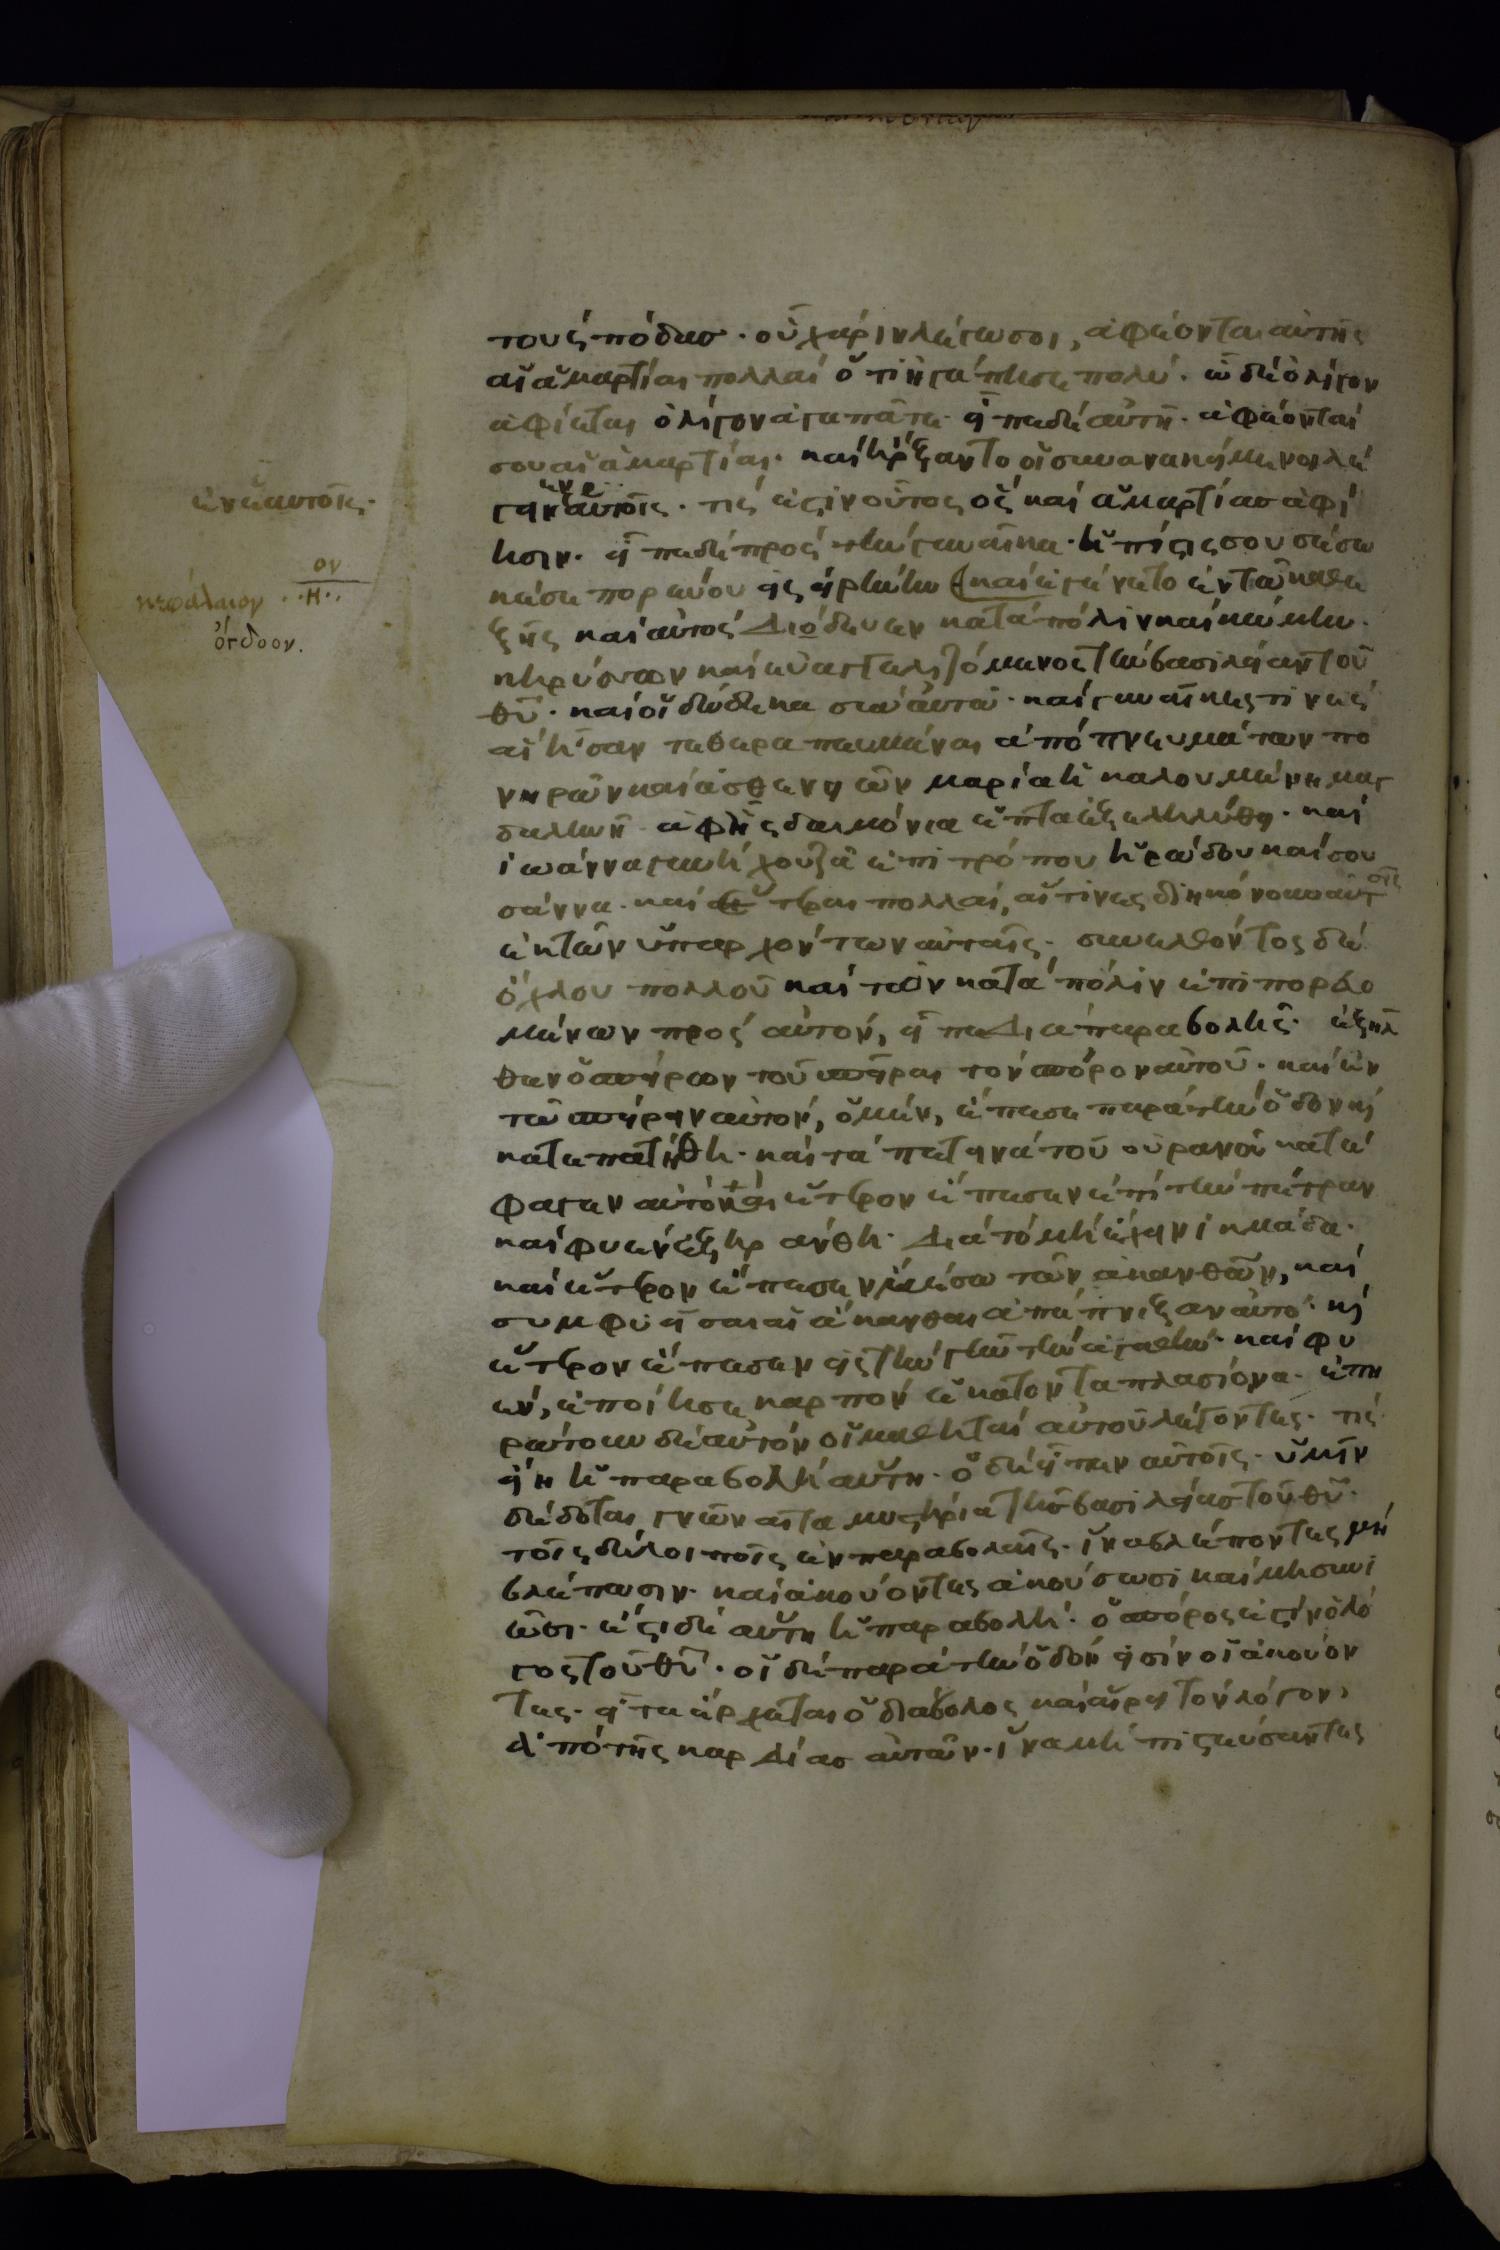 τους πόδας. οὗ χάριν λέγω σοι, ἀφέονται αὐτῆς
αἱ ἁμαρτίαι πολλαί ὅτι ἠγάπησε πολύ. ὧ δὲ ὀλίγον
ἀφίεται ὀλίγον ἀγαπᾶται. εἶπε δὲ αὐτῆ. ἀφέονταί
σου αἱ ἁμαρτίαι. καὶ ἤρξαντο οἱ συνανακείμενοι λέ
γειν ἐν ἑαυτοῖς. τίς ἐστιν οὗτος ὃς καὶ ἁμαρτίας ἀφί
ησιν. εἶπε δὲ πρὸς τὴν γυναῖκα. ἡ πίστις σου σέσω
κέ σε πορεύου εἰς εἰρήνην καὶ ἐγένετο ἐν τῶ καθε
ξῆς καὶ αὐτὸς διόδευεν κατὰ πόλιν καὶ κώμην.
κηρύσσων καὶ εὐαγγελιζόμενος τὴν βασιλείαν τοῦ
θῦ. καὶ οἱ δώδεκα σὺν αὐτῶ. καὶ γυναῖκες τινὲς
αἳ ἦσαν τεθεραπευμέναι ἀπὸ πνευμάτων πο
νηρῶν καὶ ἀσθενειῶν μαρία ἡ καλουμένη μαγ
δαληνὴ ἀφ' ἧς δαιμόνια ἑπτὰ ἐξεληλύθει. καὶ
ἰωάννα γυνὴ χουζᾶ ἐπιτρόπου ἡρώδου καὶ σου
σάννα. καὶ ἕτεραι πολλαί, αἵτινες διηκόνουν αὐτοῖς
ἐκ τῶν ὑπαρχόντων αὐταῖς. συνελθόντος δὲ
ὄχλου πολλοῦ καὶ τῶν κατὰ πόλιν ἐπιπορευο
μένων πρὸς αὐτόν, εἶπε διὰ παραβολῆς. ἐξῆλ
θεν ὁ σπείρων τοῦ σπεῖραι τὸν σπόρον αὐτοῦ. καὶ ἐν
τῶ σπείρειν αὐτόν, ὃ μὲν, ἔπεσε παρὰ τὴν ὁδὸν κὶ
κατεπατήθη. καὶ τὰ πετεινὰ τοῦ οὐρανοῦ κατέ
φαγεν αὐτό + καὶ ἕτερον ἔπεσεν ἐπὶ τὴν πέτραν
καὶ φυὲν ἐξηράνθη. διὰ τὸ μὴ ἔχειν ἰκμάδα.
καὶ ἕτερον ἔπεσεν ἐν μέσω τῶν ἀκανθῶν, καὶ
συμφυεῖσαι αἱ ἄκανθαι ἀπέπνιξαν αὐτό. κὶ
ἕτερον ἔπεσεν εἰς τὴν γῆν τὴν ἀγαθήν. καὶ φυ
έν, ἐποίησε καρπὸν ἑκατονταπλασίονα. ἐπη
ρώτουν δὲ αὐτὸν οἱ μαθηταὶ αὐτοῦ λέγοντες. τίς
εἴη ἡ παραβολὴ αὕτη. ὁ δὲ εἶπεν αὐτοῖς. ὑμῖν
δέδοται γνῶναι τὰ μυστήρια τῆς βασιλείας τοῦ θῦ.
τοῖς δὲ λοιποῖς ἐν παραβολαῖς. ἵνα βλέποντες μὴ
βλέπωσιν. καὶ ἀκούοντες ἀκούσωσι καὶ μὴ συνι
ῶσι. ἔστι δὲ αὕτη ἡ παραβολή. ὁ σπόρος ἐστὶν ὁ λό
γος τοῦ θῦ. οἱ δὲ παρὰ τὴν ὁδὸν εἰσὶν οἱ ἀκούον
τες. εἶτα ἔρχεται ὁ διάβολος καὶ αἴρει τὸν λόγον,
ἀπὸ τῆς καρδίας αὐτῶν. ἵνα μὴ πιστεύσαντες
ἐν ἑαυτοῖς.
κεφάλαιον ..Η.. ον
ὄγδοον.